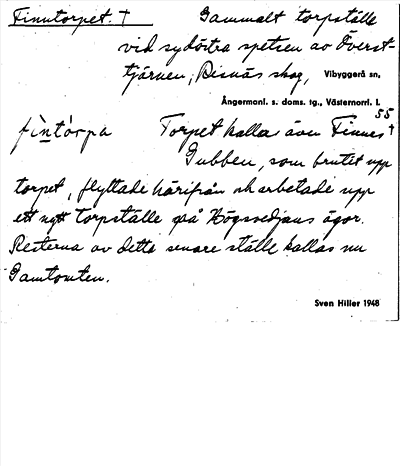 Finntorpet. † Gammalt torpställe
vid sydöstra spetsen av Överst-
tjärnen, Risnäs skog, Vibyggerå sn,
Ångermanl. s. doms. tg., Västernorrl. l.
fìntórpa Torpet kallas även Finnes †
55
Gubben, som brutit upp
torpet, flyttade härifrån och arbetade upp
ett nytt torpställe på Högssedjans ägor.
Resterna av detta senare ställe kallas nu
Gamtomten.
Sven Hiller 1948